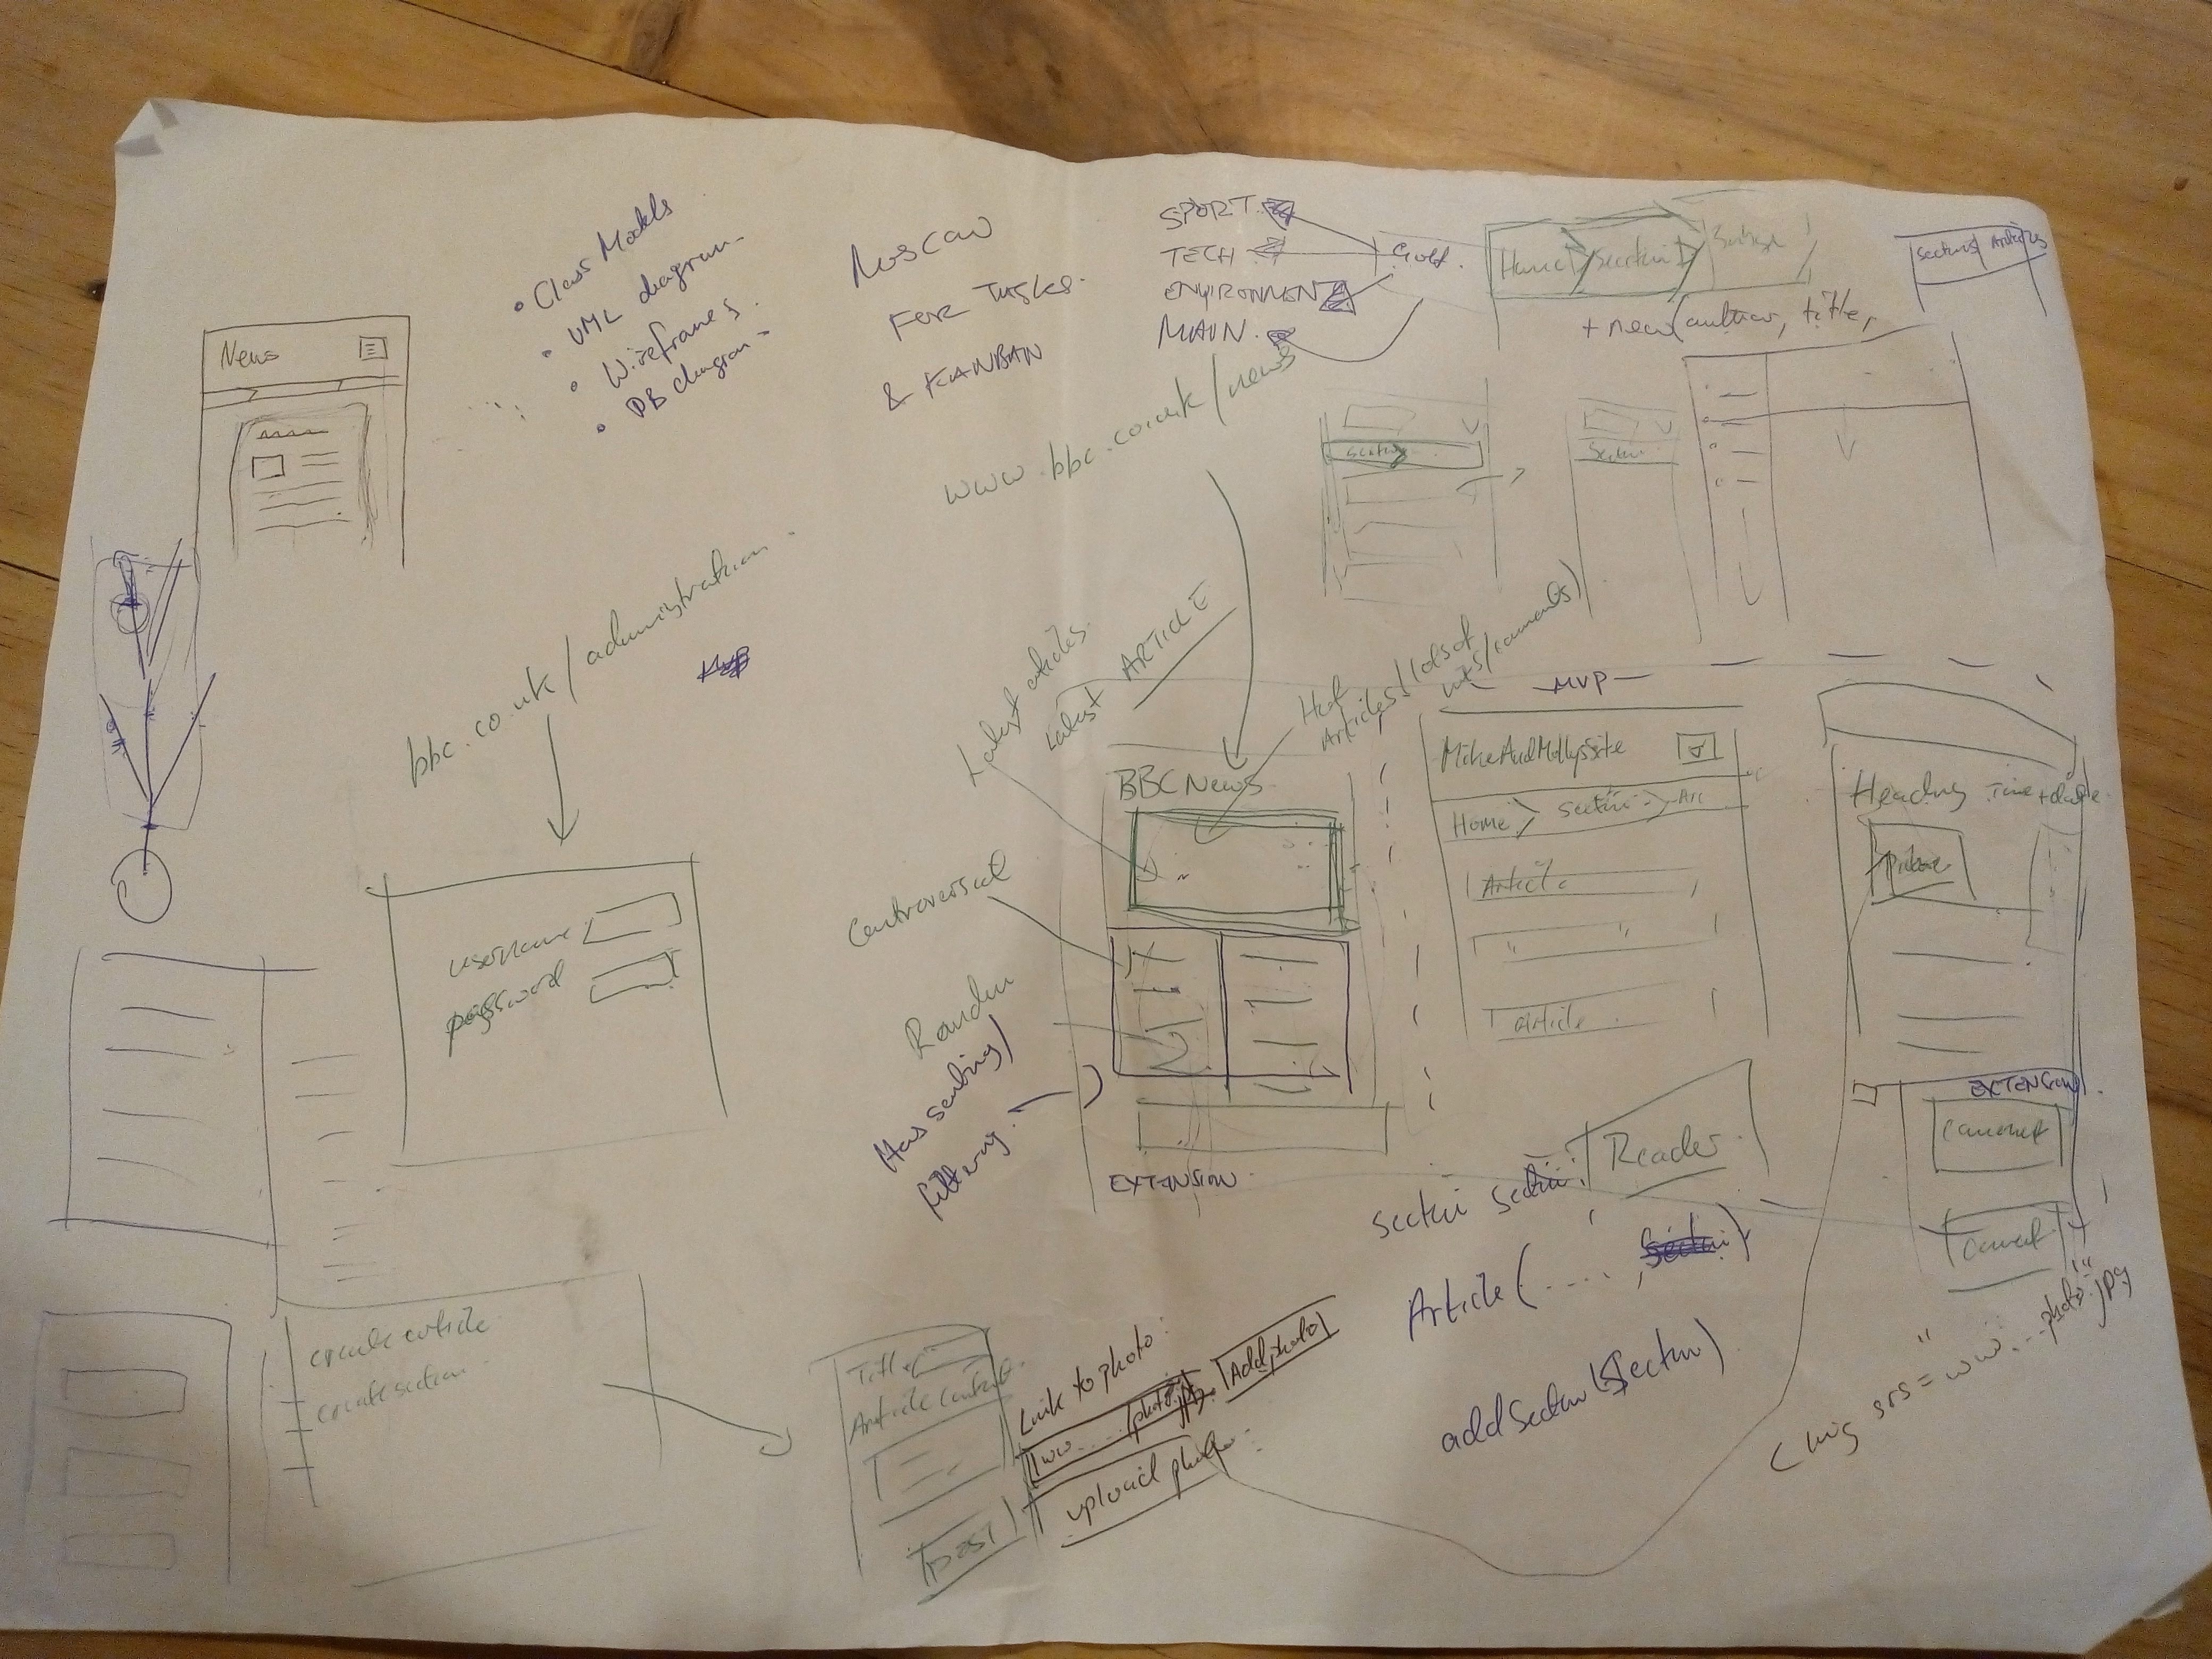 • Class Models
• UML diagram
• Wireframes
• DB diagram
MOSCOW
FOR TASKS
& KANBAN
SPORT
TECH
ENVIRONMENT
MAIN
Home
Section
+ new (author, title,
Sections
Articles
News
www.bbc.co.uk/news
Section
bbc.co.uk/administration
username
password
Latest articles
Latest ARTICLE
Hot
Articles
BBC News
Controversial
Random
Has sorting/
filtering.
EXTENSION
MVP
MikeAndMollysSite
Home > Section > Art
Article
" "
Article
Heading Time + date
Picture
EXTENSION
Comment
Comment
Reader
Section section;
Article(....,
addSection(Section)
<img src="www....photo.jpg"
create article
create section
Title
Article Content
POST
Link to photo:
www..../photo.jpg
Add photo
upload photo: